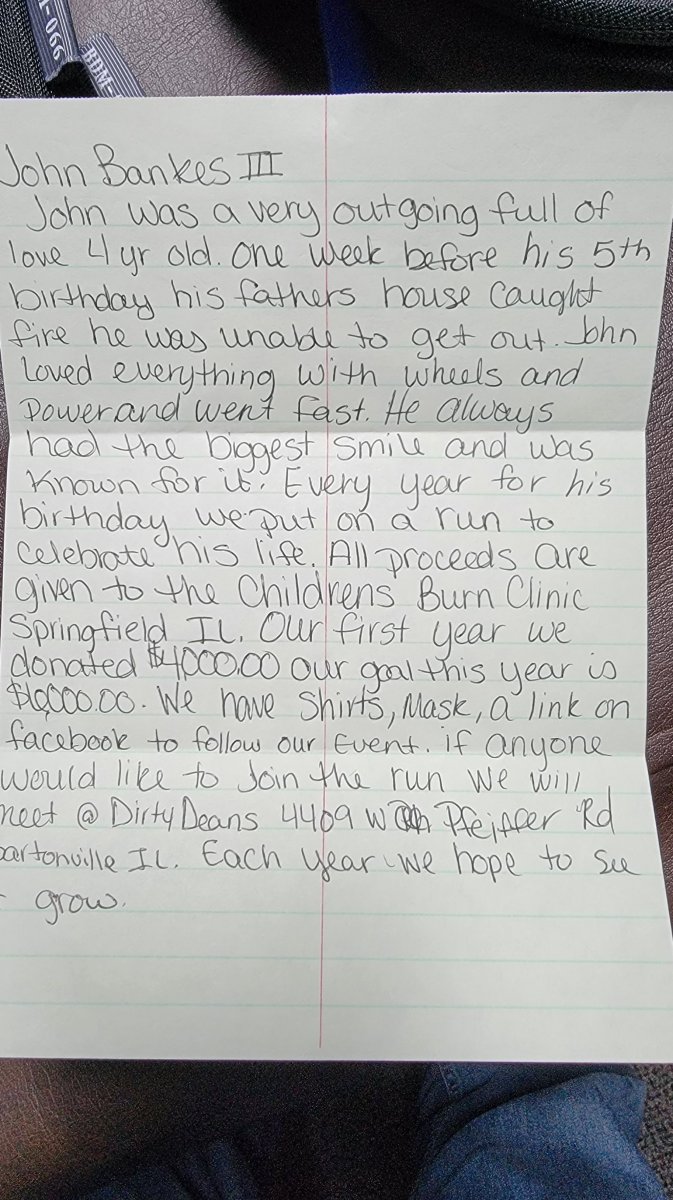 L-066
BDM-
John Bankes III
John was a very outgoing full of
love 4 yr old. One week before his 5th
birthday his fathers house caught
fire he was unable to get out. John
Loved everything with wheels and
power and went fast. He always
had the biggest smile and was
Known for it. Every year for his
birthday we put on a run to
celebrate his life. All proceeds are
given to the Childrens Burn Clinic
Springfield IL. Our first year we
donated $4000.00 our goal this year is
We have Shirts, Mask, a link on
facebook to follow our Event. if anyone
would like to Join the run we will
meet @ Dirty Deans 4409 W Pfeiffer Rd
bartonville IL. Each year we hope to see
grow.